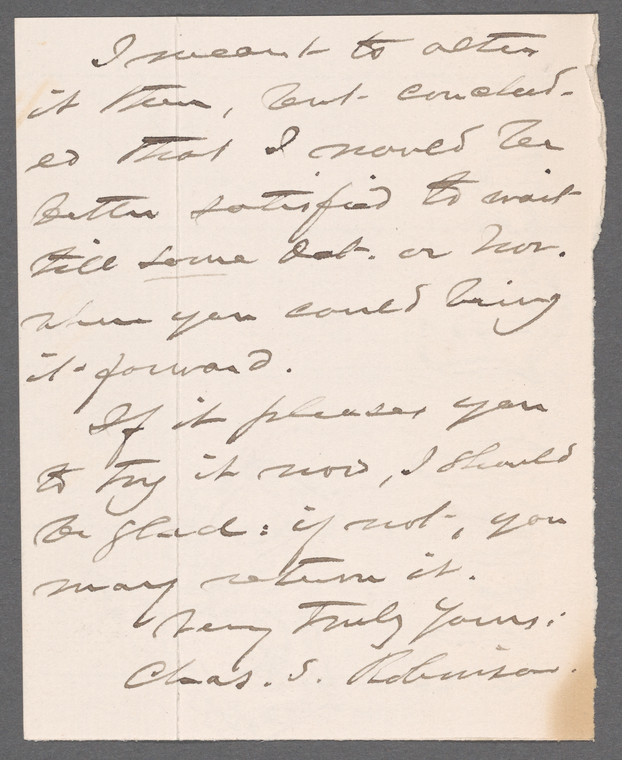 I meant to alter
it then, but conclud-
ed that I would be
better satisfied to wait
till some Oct. or Nov.
when you could bring
it forward.
If it pleases you
to try it now, I should
be glad: if not, you
may return it.
Very Truly Yours:
Chas. S. Robinson.